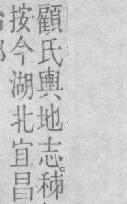 顧氏輿地志。秭
按今湖北宜昌